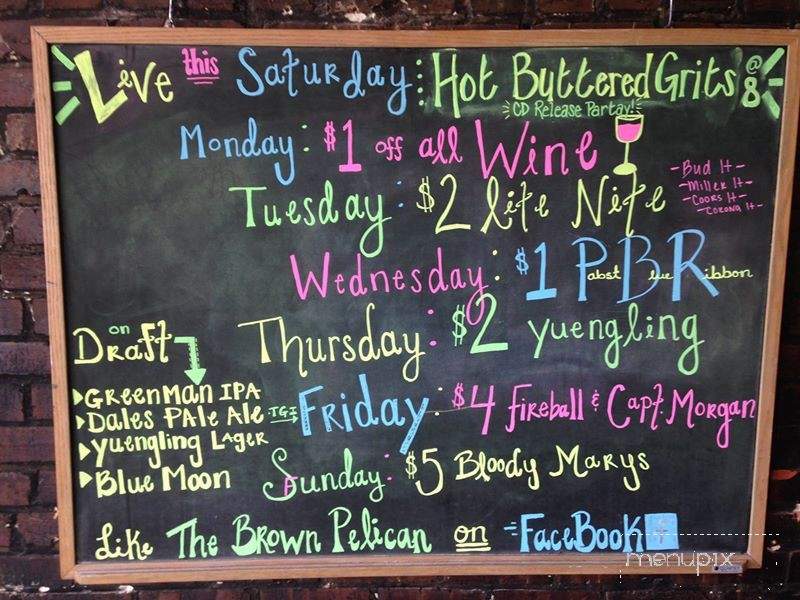 Live this Saturday: Hot Buttered Grits @ 8
CD Release Partay!
Monday: $1 off all Wine
Tuesday: $2 lite Nite
-Bud lt-
-Miller lt-
-Coors lt-
-Corona lt-
Wednesday: $1 Pabst Blue Ribbon
Thursday: $2 yuengling
on
Draft
GreenMan IPA
Dales Pale Ale
Yuengling Lager
Blue Moon
TGI Friday: $4 fireball & Capt. Morgan
Sunday: $5 Bloody Marys
Like The Brown Pelican on FaceBook
menupix